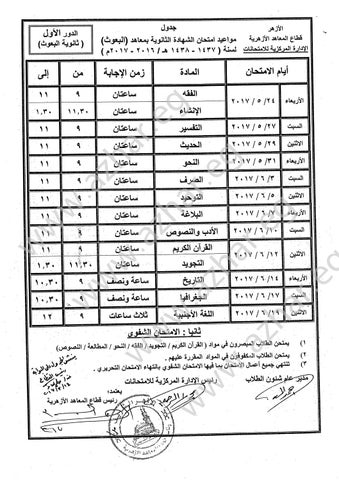 الأزهر
قطاع المعاهد الأزهرية
الإدارة المركزية للامتحانات
جدول
مواعيد امتحان الشهادة الثانوية بمعاهد (البعوث)
لسنة ( ١٤٣٧ - ١٤٣٨هـ / ٢٠١٦ - ٢٠١٧م )
الدور الأول
( ثانوية البعوث )
أيام الامتحان المادة زمن الإجابة من إلى
الأربعاء ٢٤ / ٥ / ٢٠١٧ الفقه ساعتان ٩ ١١
الإنشاء ساعتان ١١,٣٠ ١,٣٠
السبت ٢٧ / ٥ / ٢٠١٧ التفسير ساعتان ٩ ١١
الاثنين ٢٩ / ٥ / ٢٠١٧ الحديث ساعتان ٩ ١١
الأربعاء ٣١ / ٥ / ٢٠١٧ النحو ساعتان ٩ ١١
السبت ٣ / ٦ / ٢٠١٧ الصرف ساعتان ٩ ١١
الاثنين ٥ / ٦ / ٢٠١٧ التوحيد ساعتان ٩ ١١
الأربعاء ٧ / ٦ / ٢٠١٧ البلاغة ساعتان ٩ ١١
السبت ١٠ / ٦ / ٢٠١٧ الأدب والنصوص ساعتان ٩ ١١
الاثنين ١٢ / ٦ / ٢٠١٧ القرآن الكريم ساعتان ٩ ١١
التجويد ساعتان ١١,٣٠ ١,٣٠
الأربعاء ١٤ / ٦ / ٢٠١٧ التاريخ ساعة ونصف ٩ ١٠,٣٠
السبت ١٧ / ٦ / ٢٠١٧ الجغرافيا ساعة ونصف ٩ ١٠,٣٠
الاثنين ١٩ / ٦ / ٢٠١٧ اللغة الأجنبية ثلاث ساعات ٩ ١٢
ثانيا : الامتحان الشفوي
١) يمتحن الطلاب المبصرون في مواد ( القرآن الكريم / التجويد / الفقه / النحو / المطالعة / النصوص )
٢) يمتحن الطلاب المكفوفون في المواد المقررة عليهم .
٣) تنتهي جميع أعمال الامتحان بما فيها الامتحان الشفوي بانتهاء الامتحان التحريري .
مدير عام شئون الطلاب
رئيس الإدارة المركزية للامتحانات
يعتمد،
رئيس قطاع المعاهد الأزهرية
www.azhar.eg